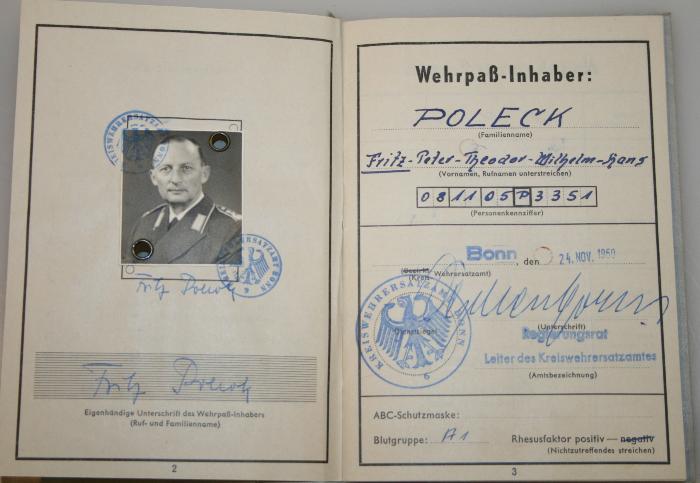 KREISWEHRERSATZAMT BONN
Fritz Poleck
Fritz Poleck
Eigenhändige Unterschrift des Wehrpaß-Inhabers
(Ruf- und Familienname)
2
Wehrpaß-Inhaber:
POLECK
(Familienname)
Fritz-Peter-Theodor-Wilhelm-Hans
(Vornamen, Rufnamen unterstreichen)
081105P3351
(Personenkennziffer)
Bonn, den 24. NOV. 1960
(Kreis Wehrersatzamt)
KREISWEHRERSATZAMT BONN
6
Dienstsiegel
(Unterschrift)
Regierungsrat
Leiter des Kreiswehrersatzamtes
(Amtsbezeichnung)
ABC-Schutzmaske:
Blutgruppe: A1 Rhesusfaktor positiv — negativ
(Nichtzutreffendes streichen)
3